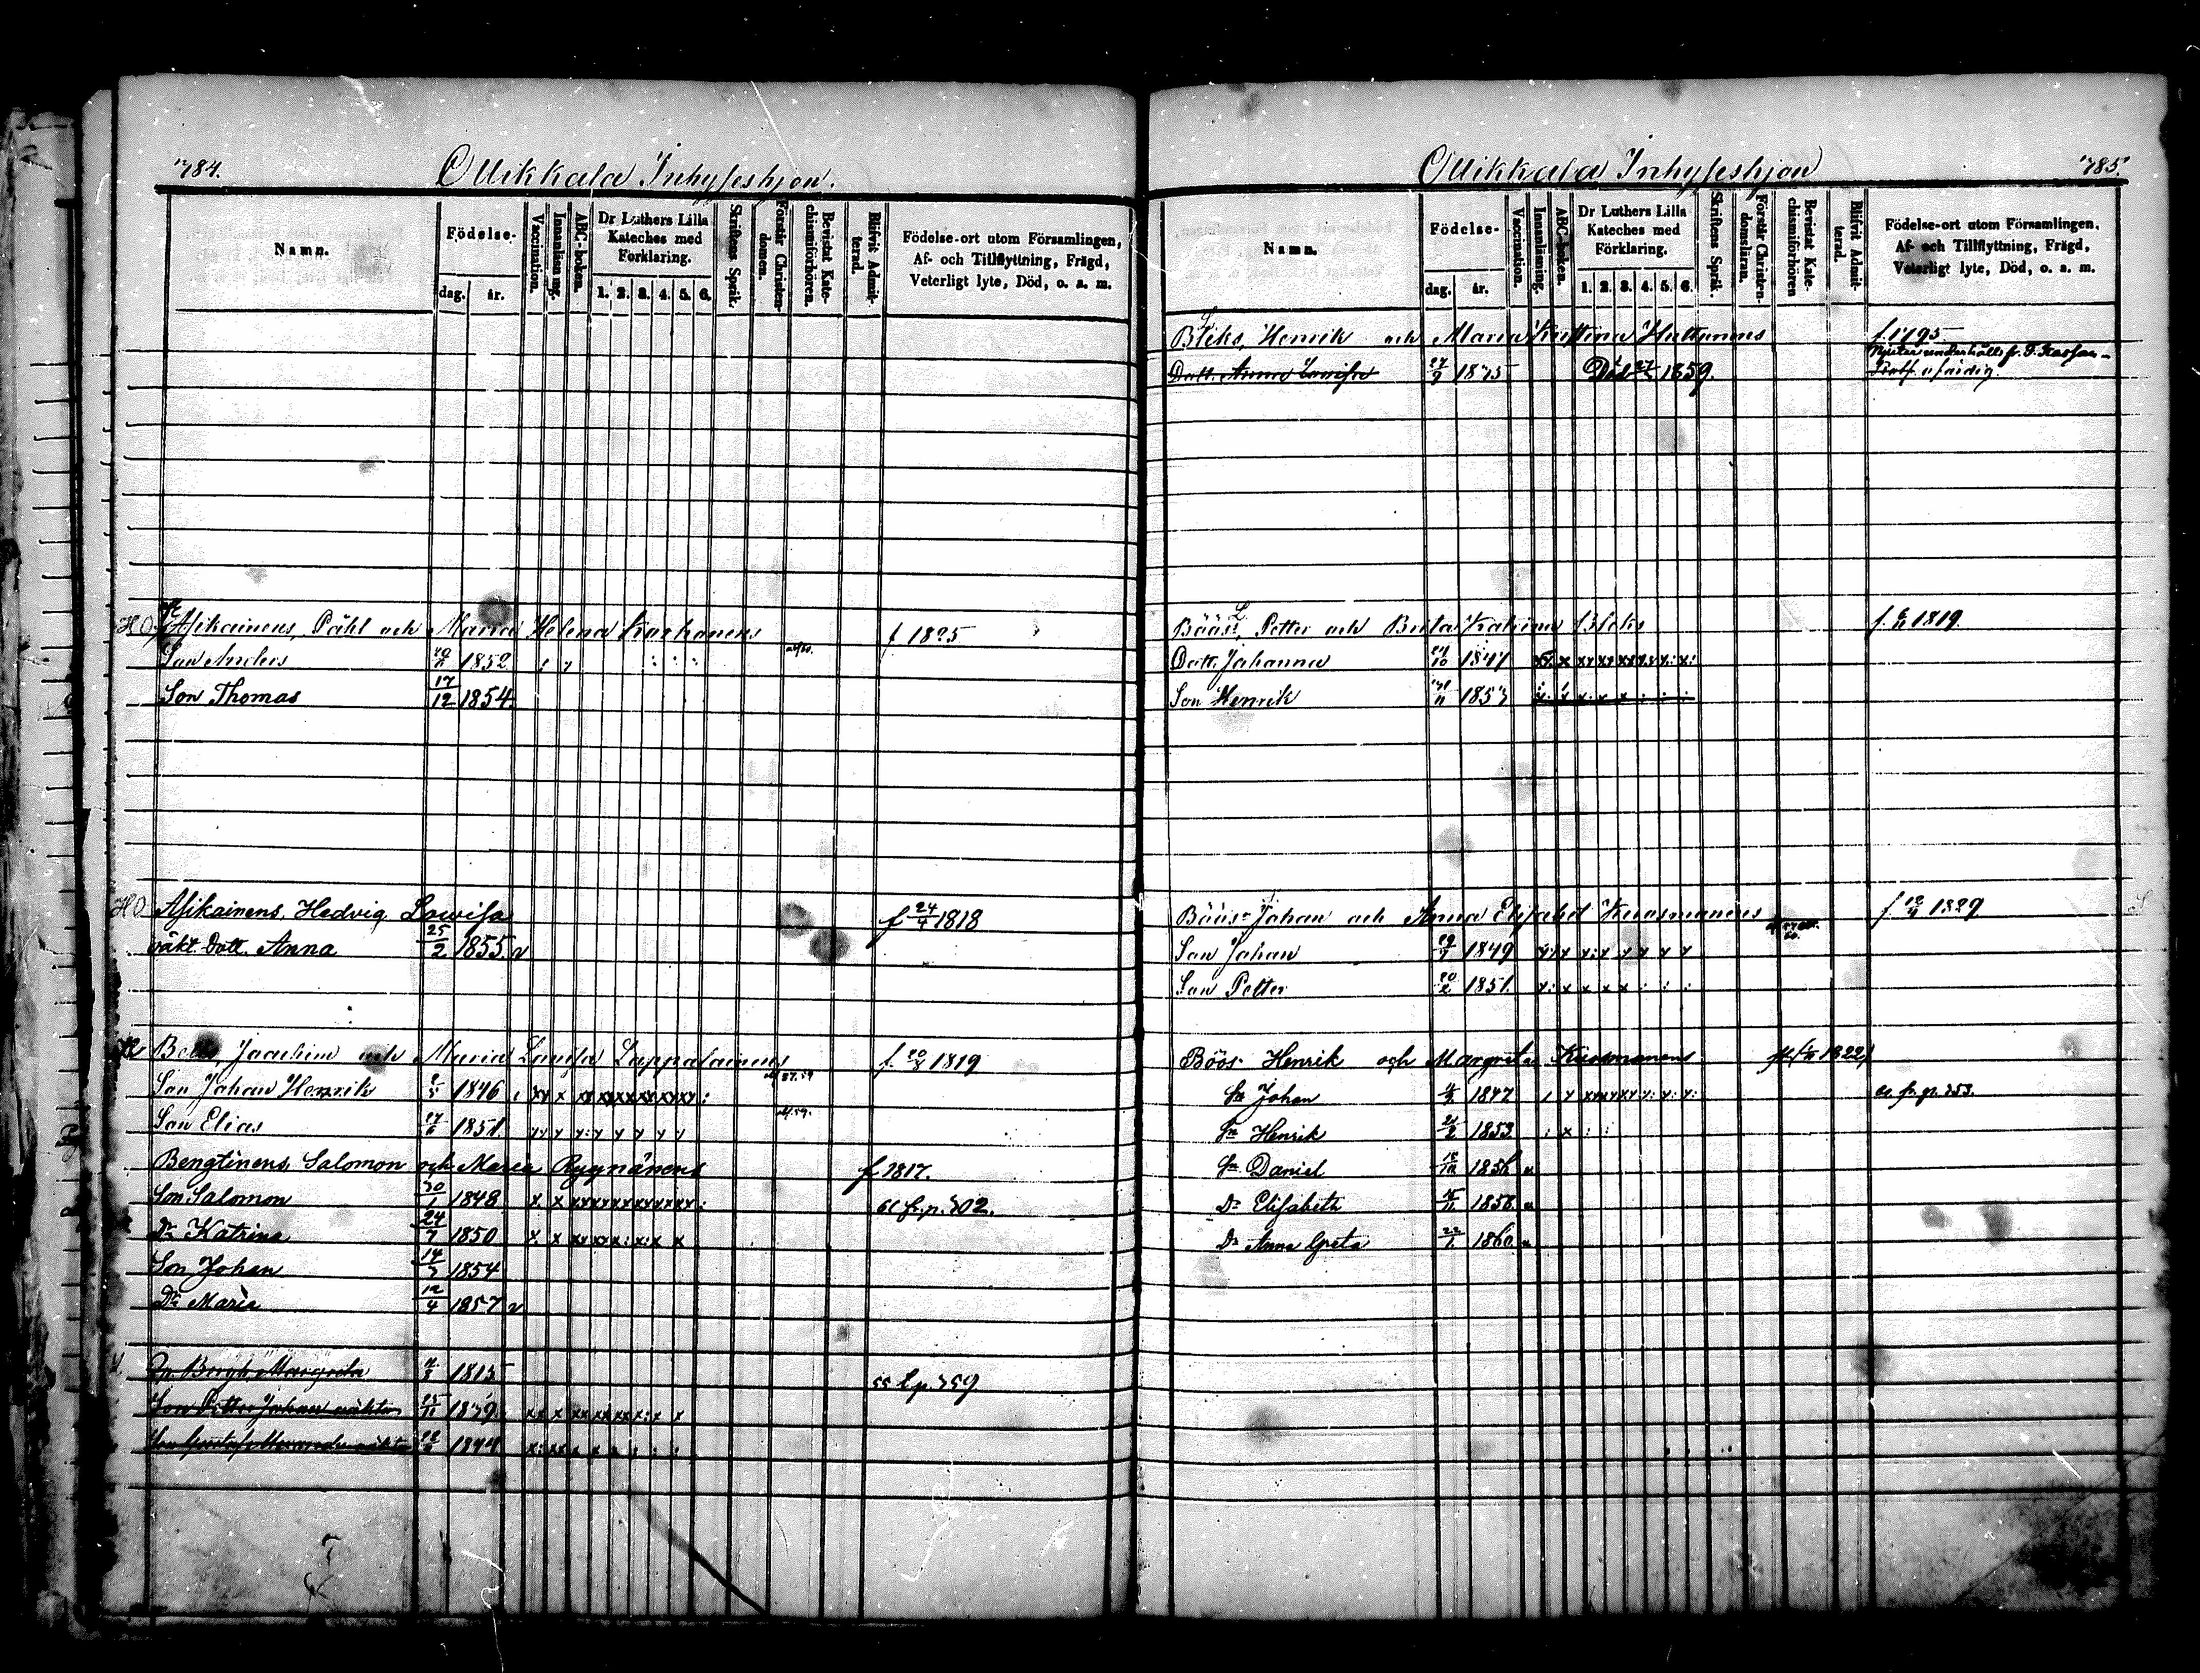 784. Ollikkala Inhyseshjon.
Namn. Födelse- Vaccination. Innanläsning. ABC-boken. Dr Luthers Lilla Kateches med Förklaring. Skriftens Språk. Förstår Christendomen. Bevistat Katechismiförhören. Blifvit Admitterad. Födelse-ort utom Församlingen, Af- och Tillflyttning, Frägd, Veterligt lyte, Död, o. a. m.
dag. år. 1. 2. 3. 4. 5. 6.
HO Asikainens, Påhl och Maria Helena Karhonens f 1825
Son Anders 1852
Son Thomas 17/12 1854
HO Asikainens, Hedvig Lowisa f 24/4 1818
oäkt Dott. Anna 25/2 1855 v
Joachim och Maria Lovisa Lappalainens f. 20/8 1819
Son Johan Henrik 1846
Son Elias 1851
Bengtinens, Salomon och Maria Rygnänens f 1817.
Son Salomon 30/1 1848 x x 61 fr. p. 302.
Dr Katrina 24/7 1850 x x
Son Johan 14/3 1854
Dr Maria 12/4 1857 v
Bergh, Margreta 1815 55 l. p. 359
Son Petter Johan oäkta 25/11 1839
1844
Ollikkala Inhyseshjon 785.
Namn. Födelse- Vaccination. Innanläsning. ABC-boken. Dr Luthers Lilla Kateches med Förklaring. Skriftens Språk. Förstår Christendomsläran. Bevistat Katechismiförhören Blifvit Admitterad. Födelse-ort utom Församlingen, Af- och Tillflyttning, Frägd, Veterligt lyte, Död, o. a. m.
dag. år. 1. 2. 3. 4. 5. 6.
Bleks, Henrik och Maria Kristina Huttunens f. 1795
Dott. Anna Lovisa 27/9 1835 Död 1859.
Böös, Petter och Brita Katrina Bleks f. 1819
Dott. Johanna 1847
Son Henrik 1853
Böös Johan och Anna Elisabet Kuosmanens f. 1829
Son Johan 1849
Son Petter 20/2 1851
Böös Henrik och Margreta Kuosmanens 1822
Sn Johan 1847 fr. p. 353.
Sn Henrik 1853
Sn Daniel 1856
Dr Elisabeth 1858
Dr Anna Greta 1860